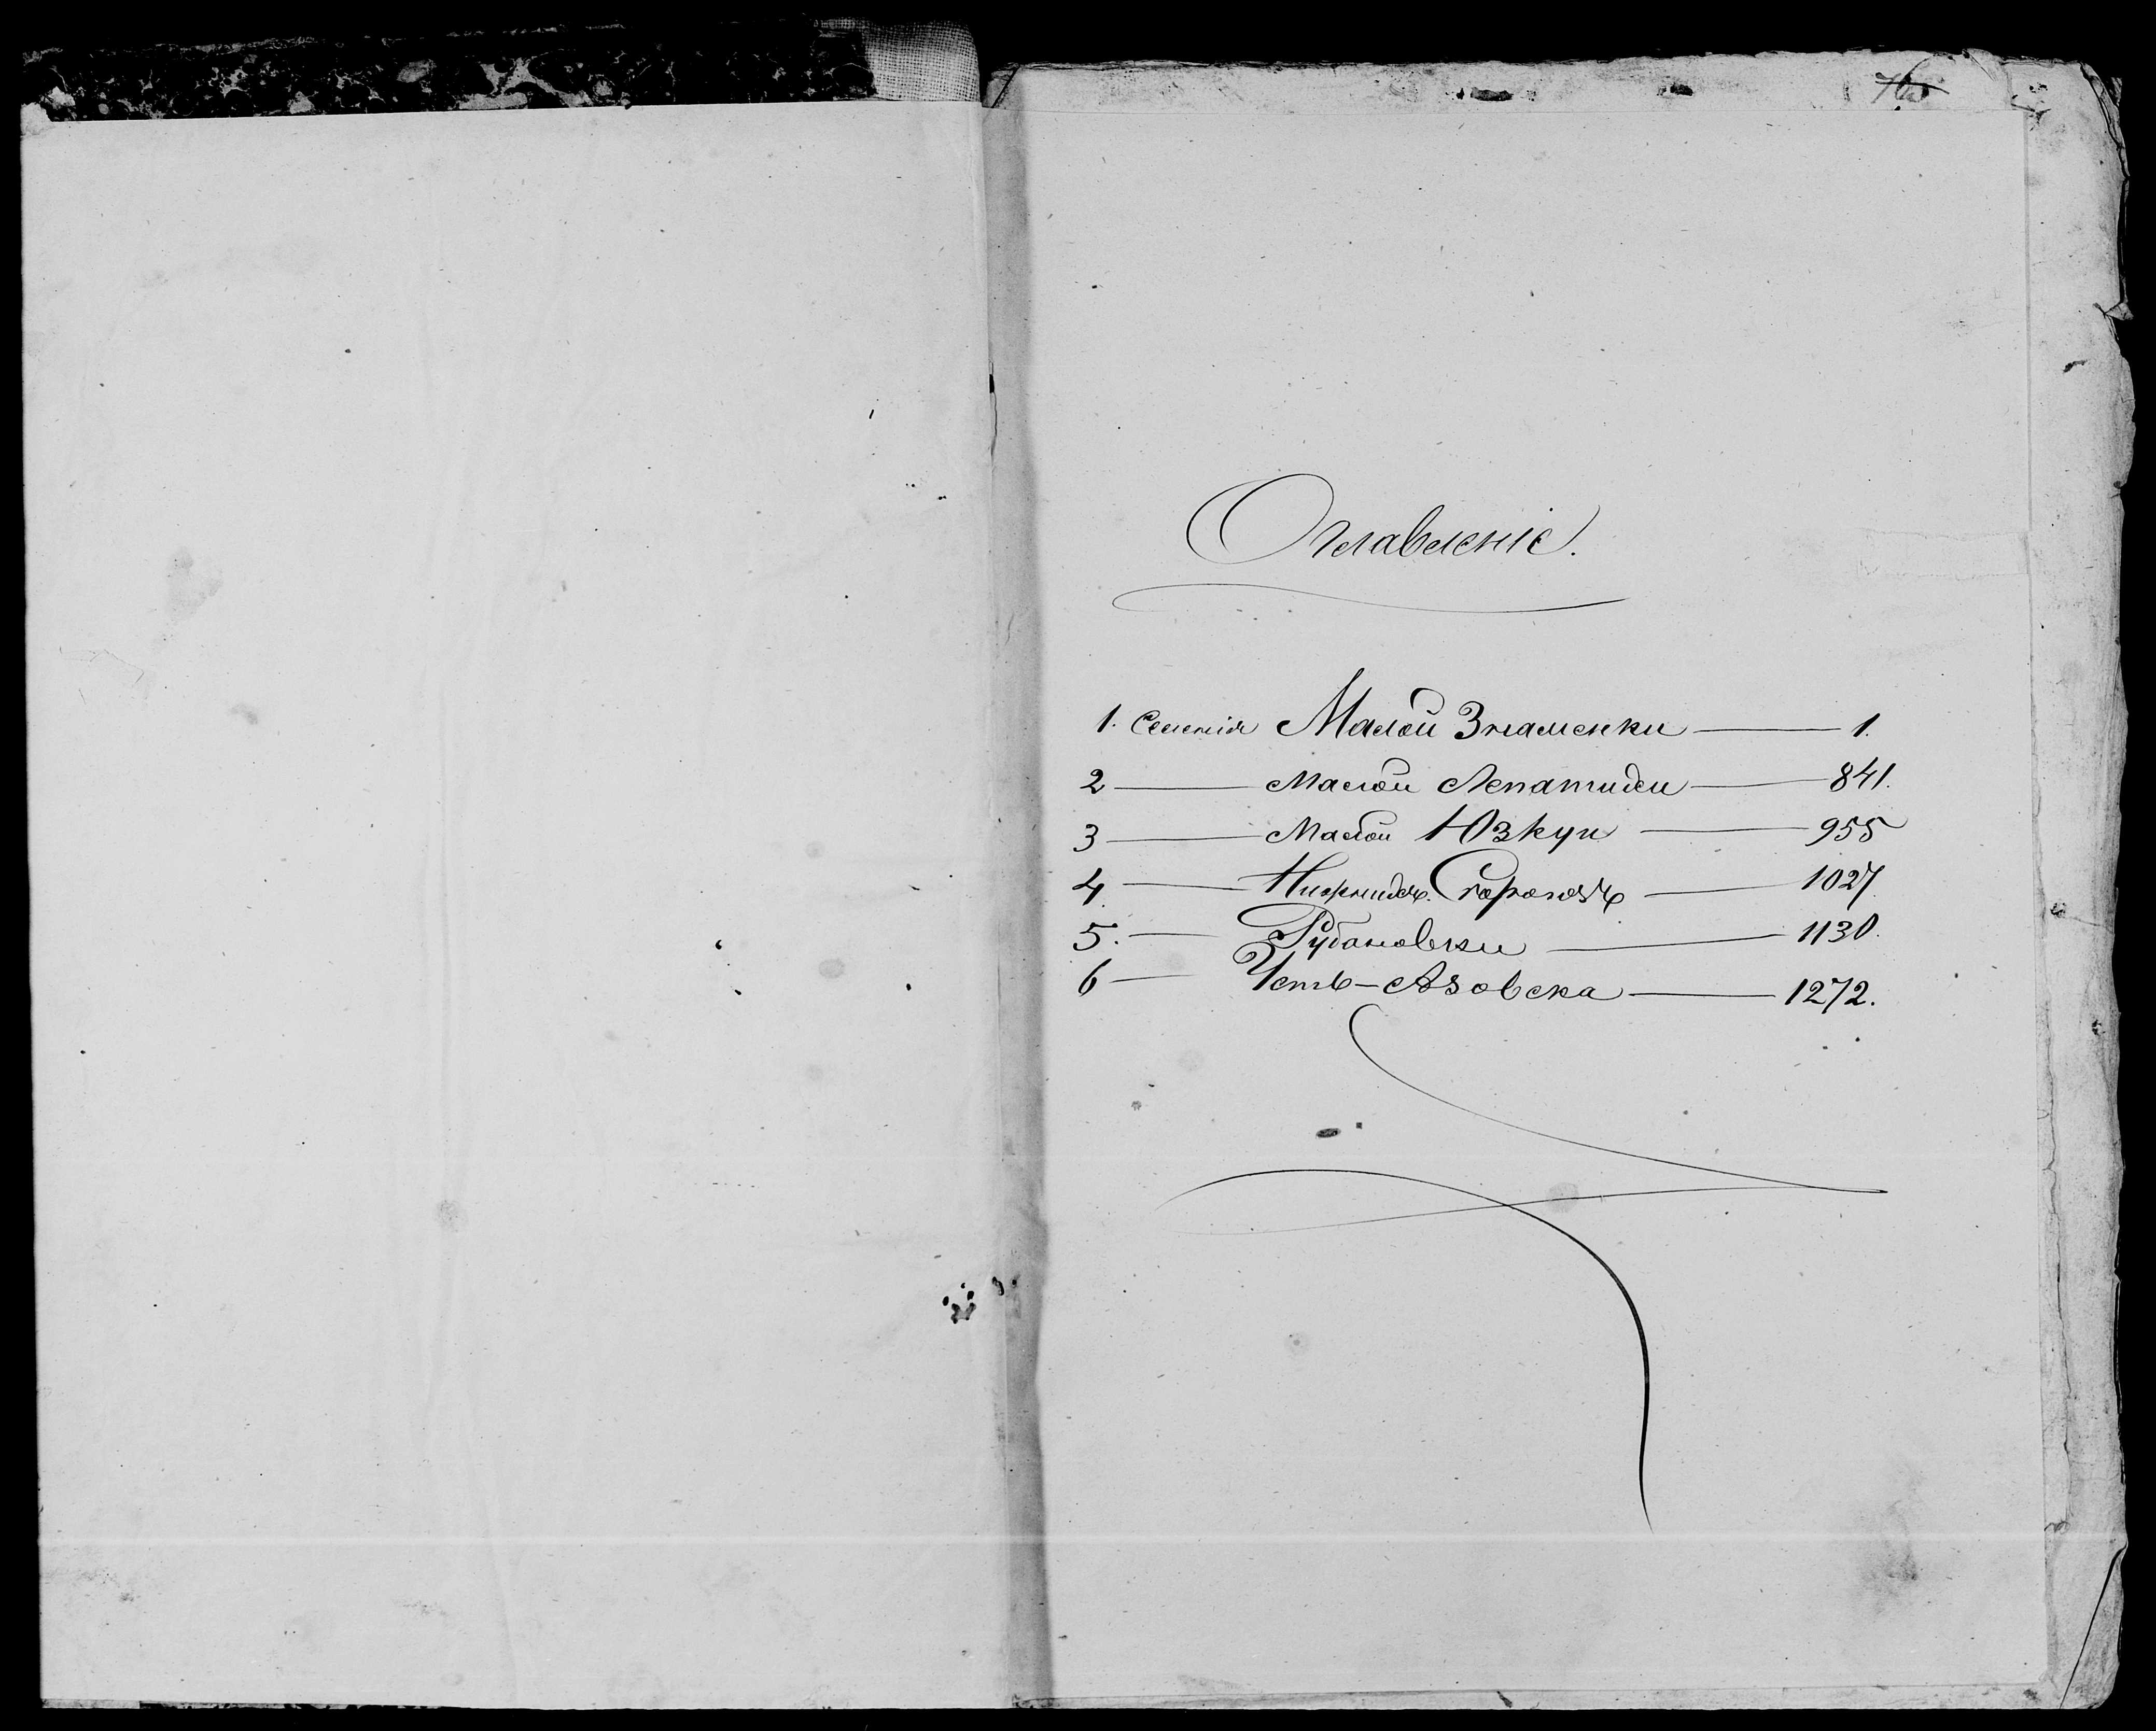 Оглавленіе.
1. Селенія Малой Знаменки — 1.
2 — Малой Лепатихи — 841.
3 — Малой Юзкуи — 955
4 — Нижнихъ Сѣрогозъ — 1027
5. — Рубановки — 1130.
6 — Усть-Азовска — 1272.